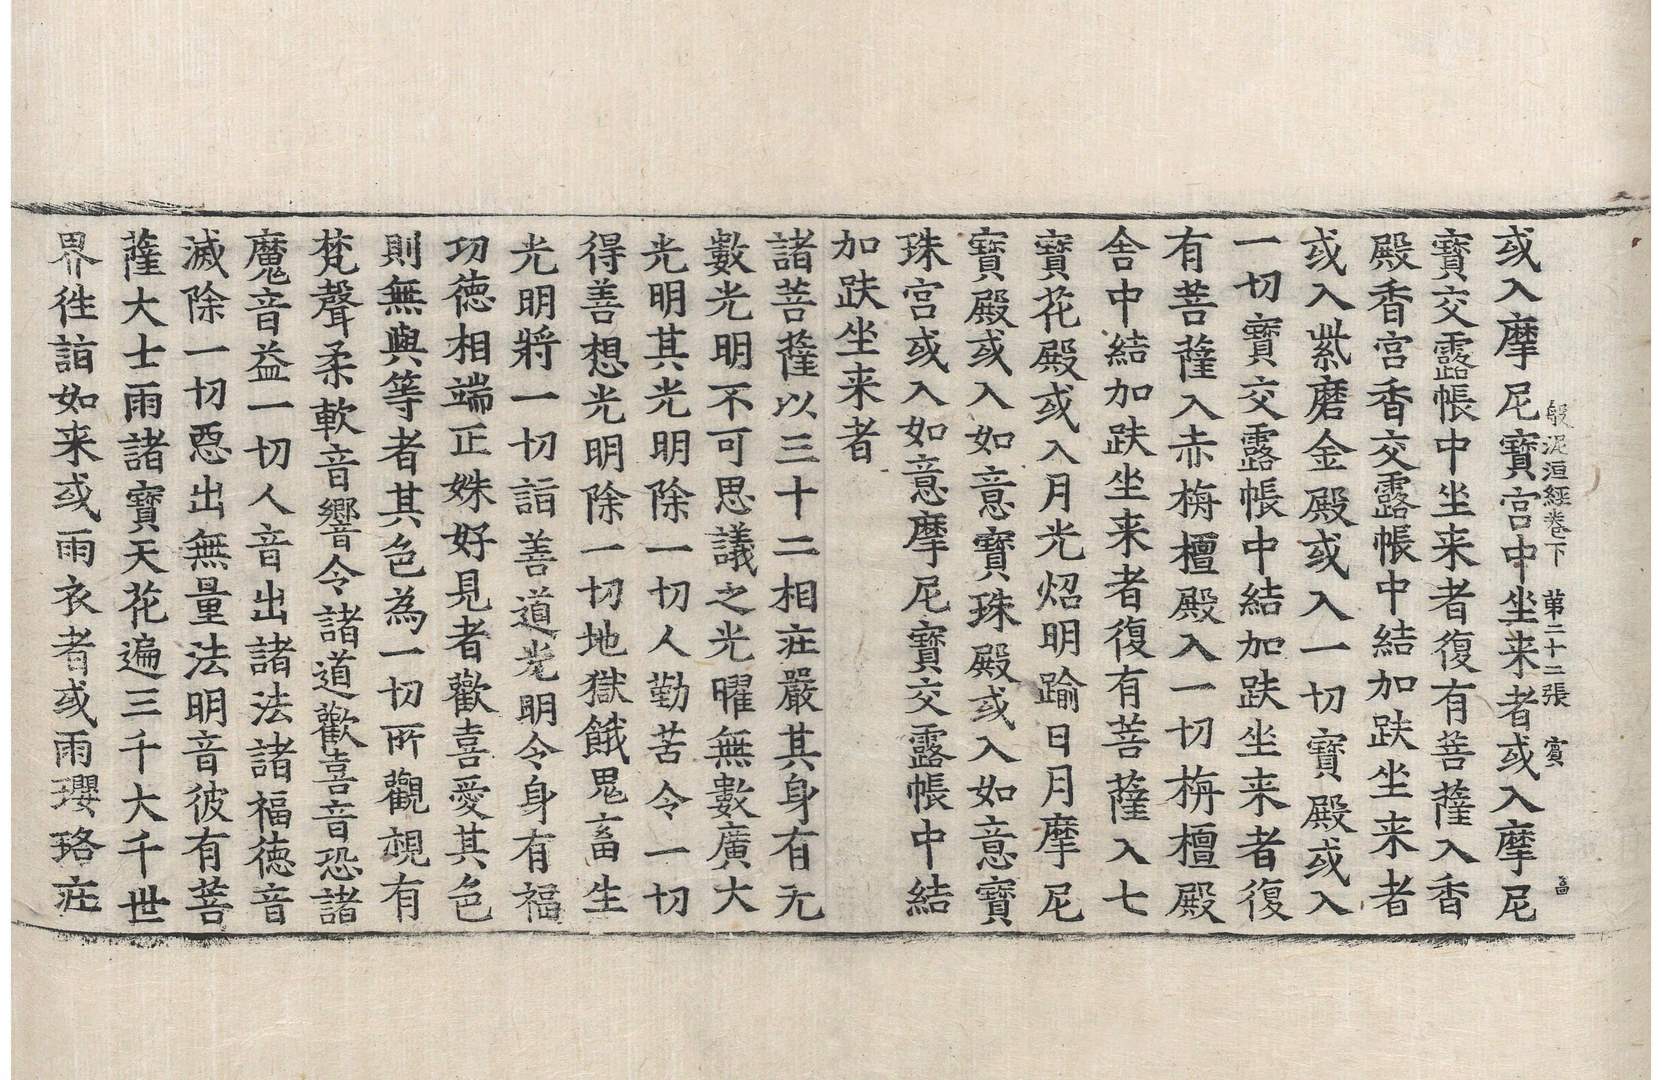 般泥洹經卷下 第二十二張 賓
或入摩尼寶宮中坐来者或入摩尼
寶交露帳中坐来者復有菩薩入香
殿香宮香交露帳中結加趺坐来者
或入紫磨金殿或入一切寶殿或入
一切寶交露帳中結加趺坐来者復
有菩薩入赤栴檀殿入一切栴檀殿
舍中結加趺坐来者復有菩薩入七
寶花殿或入月光炤明踰日月摩尼
寶殿或入如意寶珠殿或入如意寶
珠宮或入如意摩尼寶交露帳中結
加趺坐来者
諸菩薩以三十二相莊嚴其身有无
數光明不可思議之光曜無數廣大
光明其光明除一切人勤苦令一切
得善想光明除一切地獄餓鬼畜生
光明將一切詣善道光明令身有福
功德相端正姝好見者歡喜愛其色
則無與等者其色為一切所觀視有
梵聲柔軟音響令諸道歡喜音恐諸
魔音益一切人音出諸法諸福德音
滅除一切惡出無量法明音彼有菩
薩大士雨諸寶天花遍三千大千世
界往詣如来或雨衣者或雨瓔珞莊